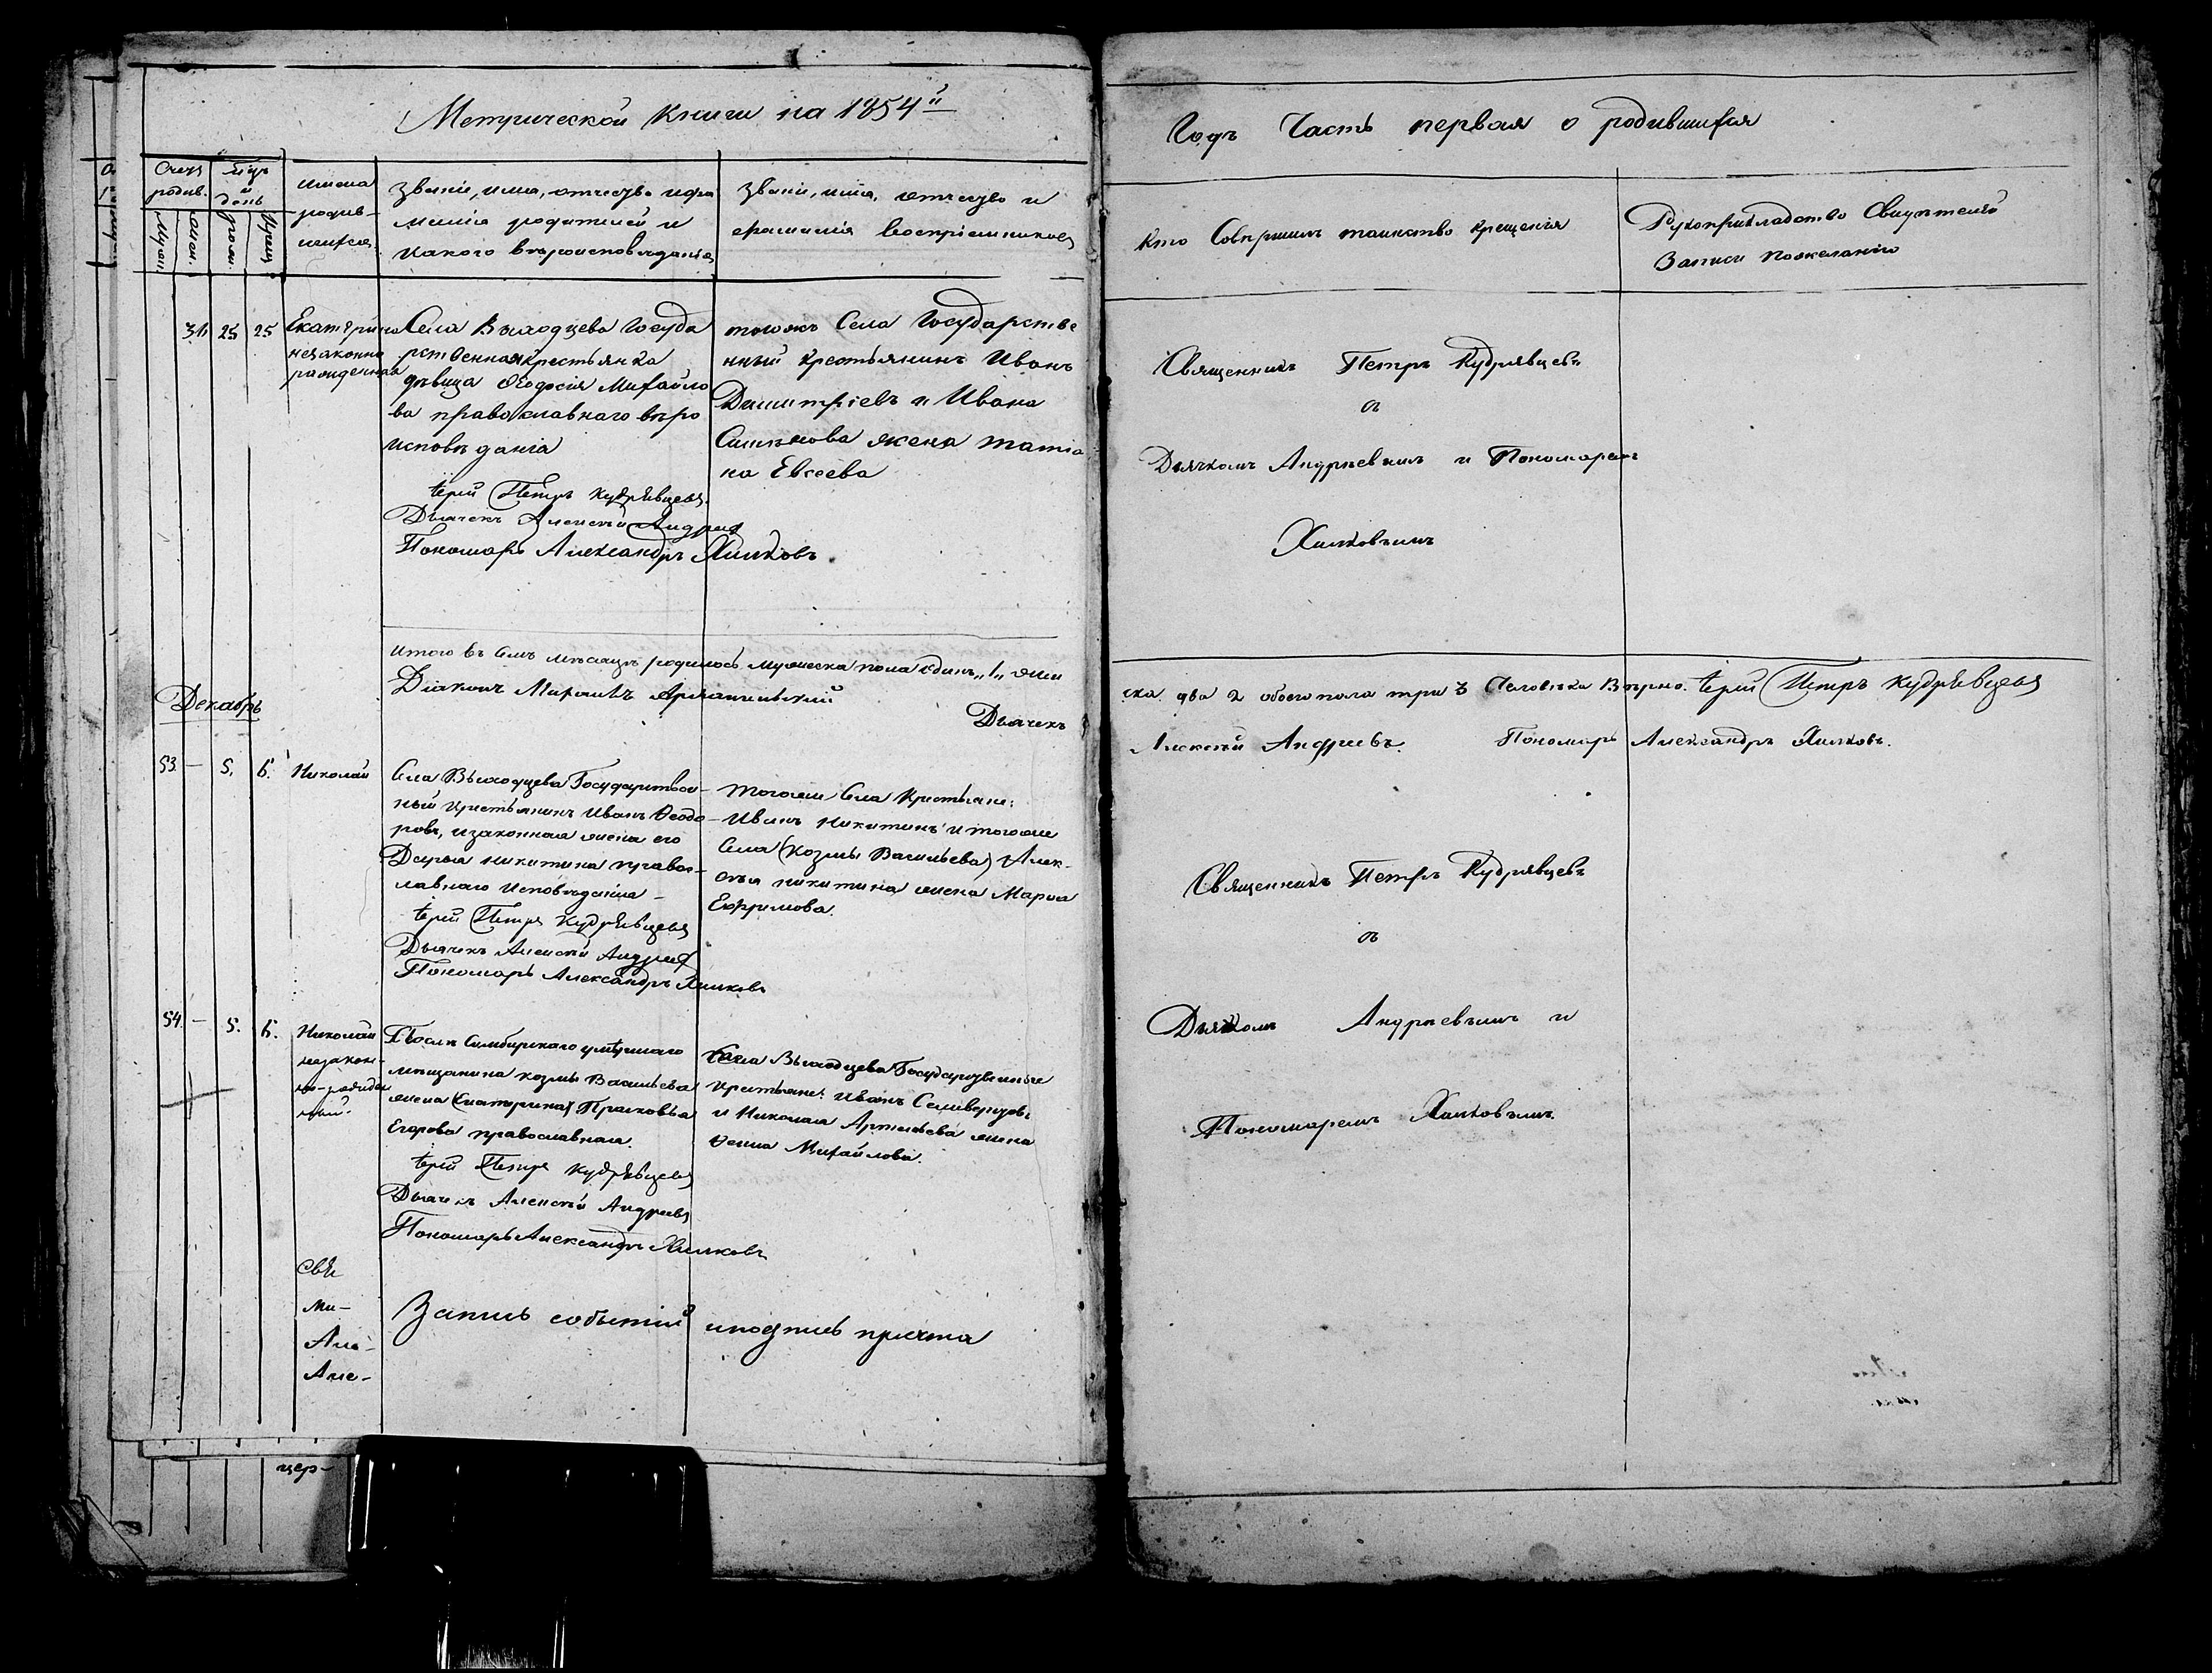 Метрической Книги на 1854й
Годъ Часть первая о родившихся
Счетъ родив.
Муж.
женс.
Мѣцъ и день
рожд.
Крещ.
имена
родив-
шихся
званіе, имя, отчество и фа
милія родителей и
какого вѣроисповѣданія
званіе, имя, отчество и
фамилія восприемниковъ
Кто Совершилъ таинство крещенія
Рукоприкладство Свидѣтелей
Записи по желанію
31 25 25
Екатерина
незаконно
рожденная
Села Выходцева Госуда
рственная крестьянка
дѣвица Ѳеодосія Михайло
ва православнаго вѣро
исповѣданія
Іерей Петръ Кудрявцевъ
Дьячекъ Алексѣй Андреев
Пономарь Александръ Хилковъ
тогожъ Села Государстве
нный крестьянинъ Иванъ
Димитріевъ и Ивана
жена Татіа
на Евсеева
Священникъ Петръ Кудрявцевъ
съ
Дьячкомъ Андреевымъ и Пономаремъ
Хилковымъ
итого въ семъ мѣсяцѣ родилось мужеска пола одинъ „1„ жен
ска два 2 обоего пола три 3 Человѣка Вѣрно. Іерей Петръ Кудрявцевъ
Діаконъ Архангельскій
Дьячекъ
Алексѣй Андреевъ. Пономарь Александръ Хилковъ.
Декабрь
53. — 5. 6.
Николай
Села Выходцева Государствен-
ный крестьянинъ Иванъ Ѳеодо-
ровъ, и законная жена его
Дарья Никитина правос-
лавнаго исповѣданія —
Іерей Петръ Кудрявцевъ
Дьячекъ Алексѣй Андреев
Пономарь Александръ Хилковъ
тогоже Села Крестьяне:
Иванъ Никитинъ и тогоже
Села (Козмы Васильева) Алек-
сѣя Никитина жена Марья
Ефримова.
Священникъ Петръ Кудрявцевъ
съ
Дьячкомъ Андреевымъ и
Пономаремъ Хилковымъ.
54. — 5. 6.
Николай
незакон-
но-рожден
ный.
Симбирскаго
мѣщанина Козмы Васильева
жена (Екатерина) Прасковья
Егорова православная.
Іерей Петръ Кудрявцевъ
Дьячекъ Алексѣй Андреевъ
Пономарь Александръ Хилковъ
Села Выходцева Государственные
крестьяне: Иванъ Селиверстовъ
и Николая Артемьева жена
Михайлова.
Свя
Ми-
Але-
Але-
Запись событій и подпись причта
цер-